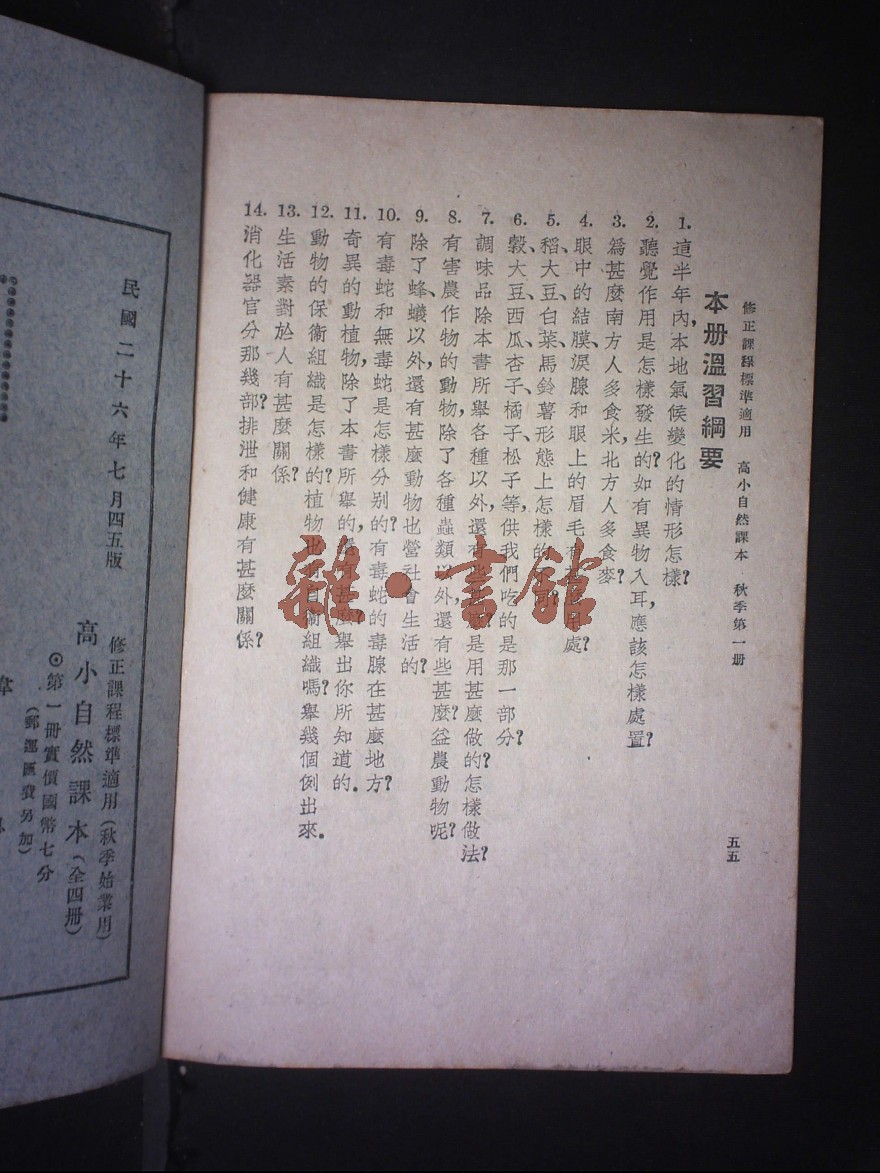 修正課程標準適用 高小自然課本 秋季第一册
五五
本册溫習綱要
1. 這半年內,本地氣候變化的情形怎樣?
2. 聽覺作用是怎樣發生的?如有異物入耳,應該怎樣處置?
3. 爲甚麼南方人多食米,北方人多食麥?
4. 眼中的結膜、淚腺和眼上的眉毛有處?
5. 稻、大豆、白菜、馬鈴薯形態上怎樣的
6. 穀、大豆、西瓜、杏子、橘子、松子等,供我們吃的是那一部分?
7. 調味品除本書所舉各種以外,還有些是用甚麼做的?怎樣做法?
8. 有害農作物的動物,除了各種蟲類以外,還有些甚麼?益農動物呢?
9. 除了蜂、蟻以外,還有甚麼動物也營社會生活的?
10. 有毒蛇和無毒蛇是怎樣分别的?有毒蛇的毒腺在甚麼地方?
11. 奇異的動植物,除了本書所舉的,還有甚麼?舉出你所知道的.
12. 動物的保衞組織是怎樣的?植物也有自衞組織嗎?舉幾個例出來.
13. 生活素對於人有甚麼關係?
14. 消化器官分那幾部?排泄和健康有甚麼關係?
雜·書館
修正課程標準適用(秋季始業用)
高小自然課本(全四册)
◎第一册實價國幣七分
(郵運匯費另加)
民國二十六年七月四五版